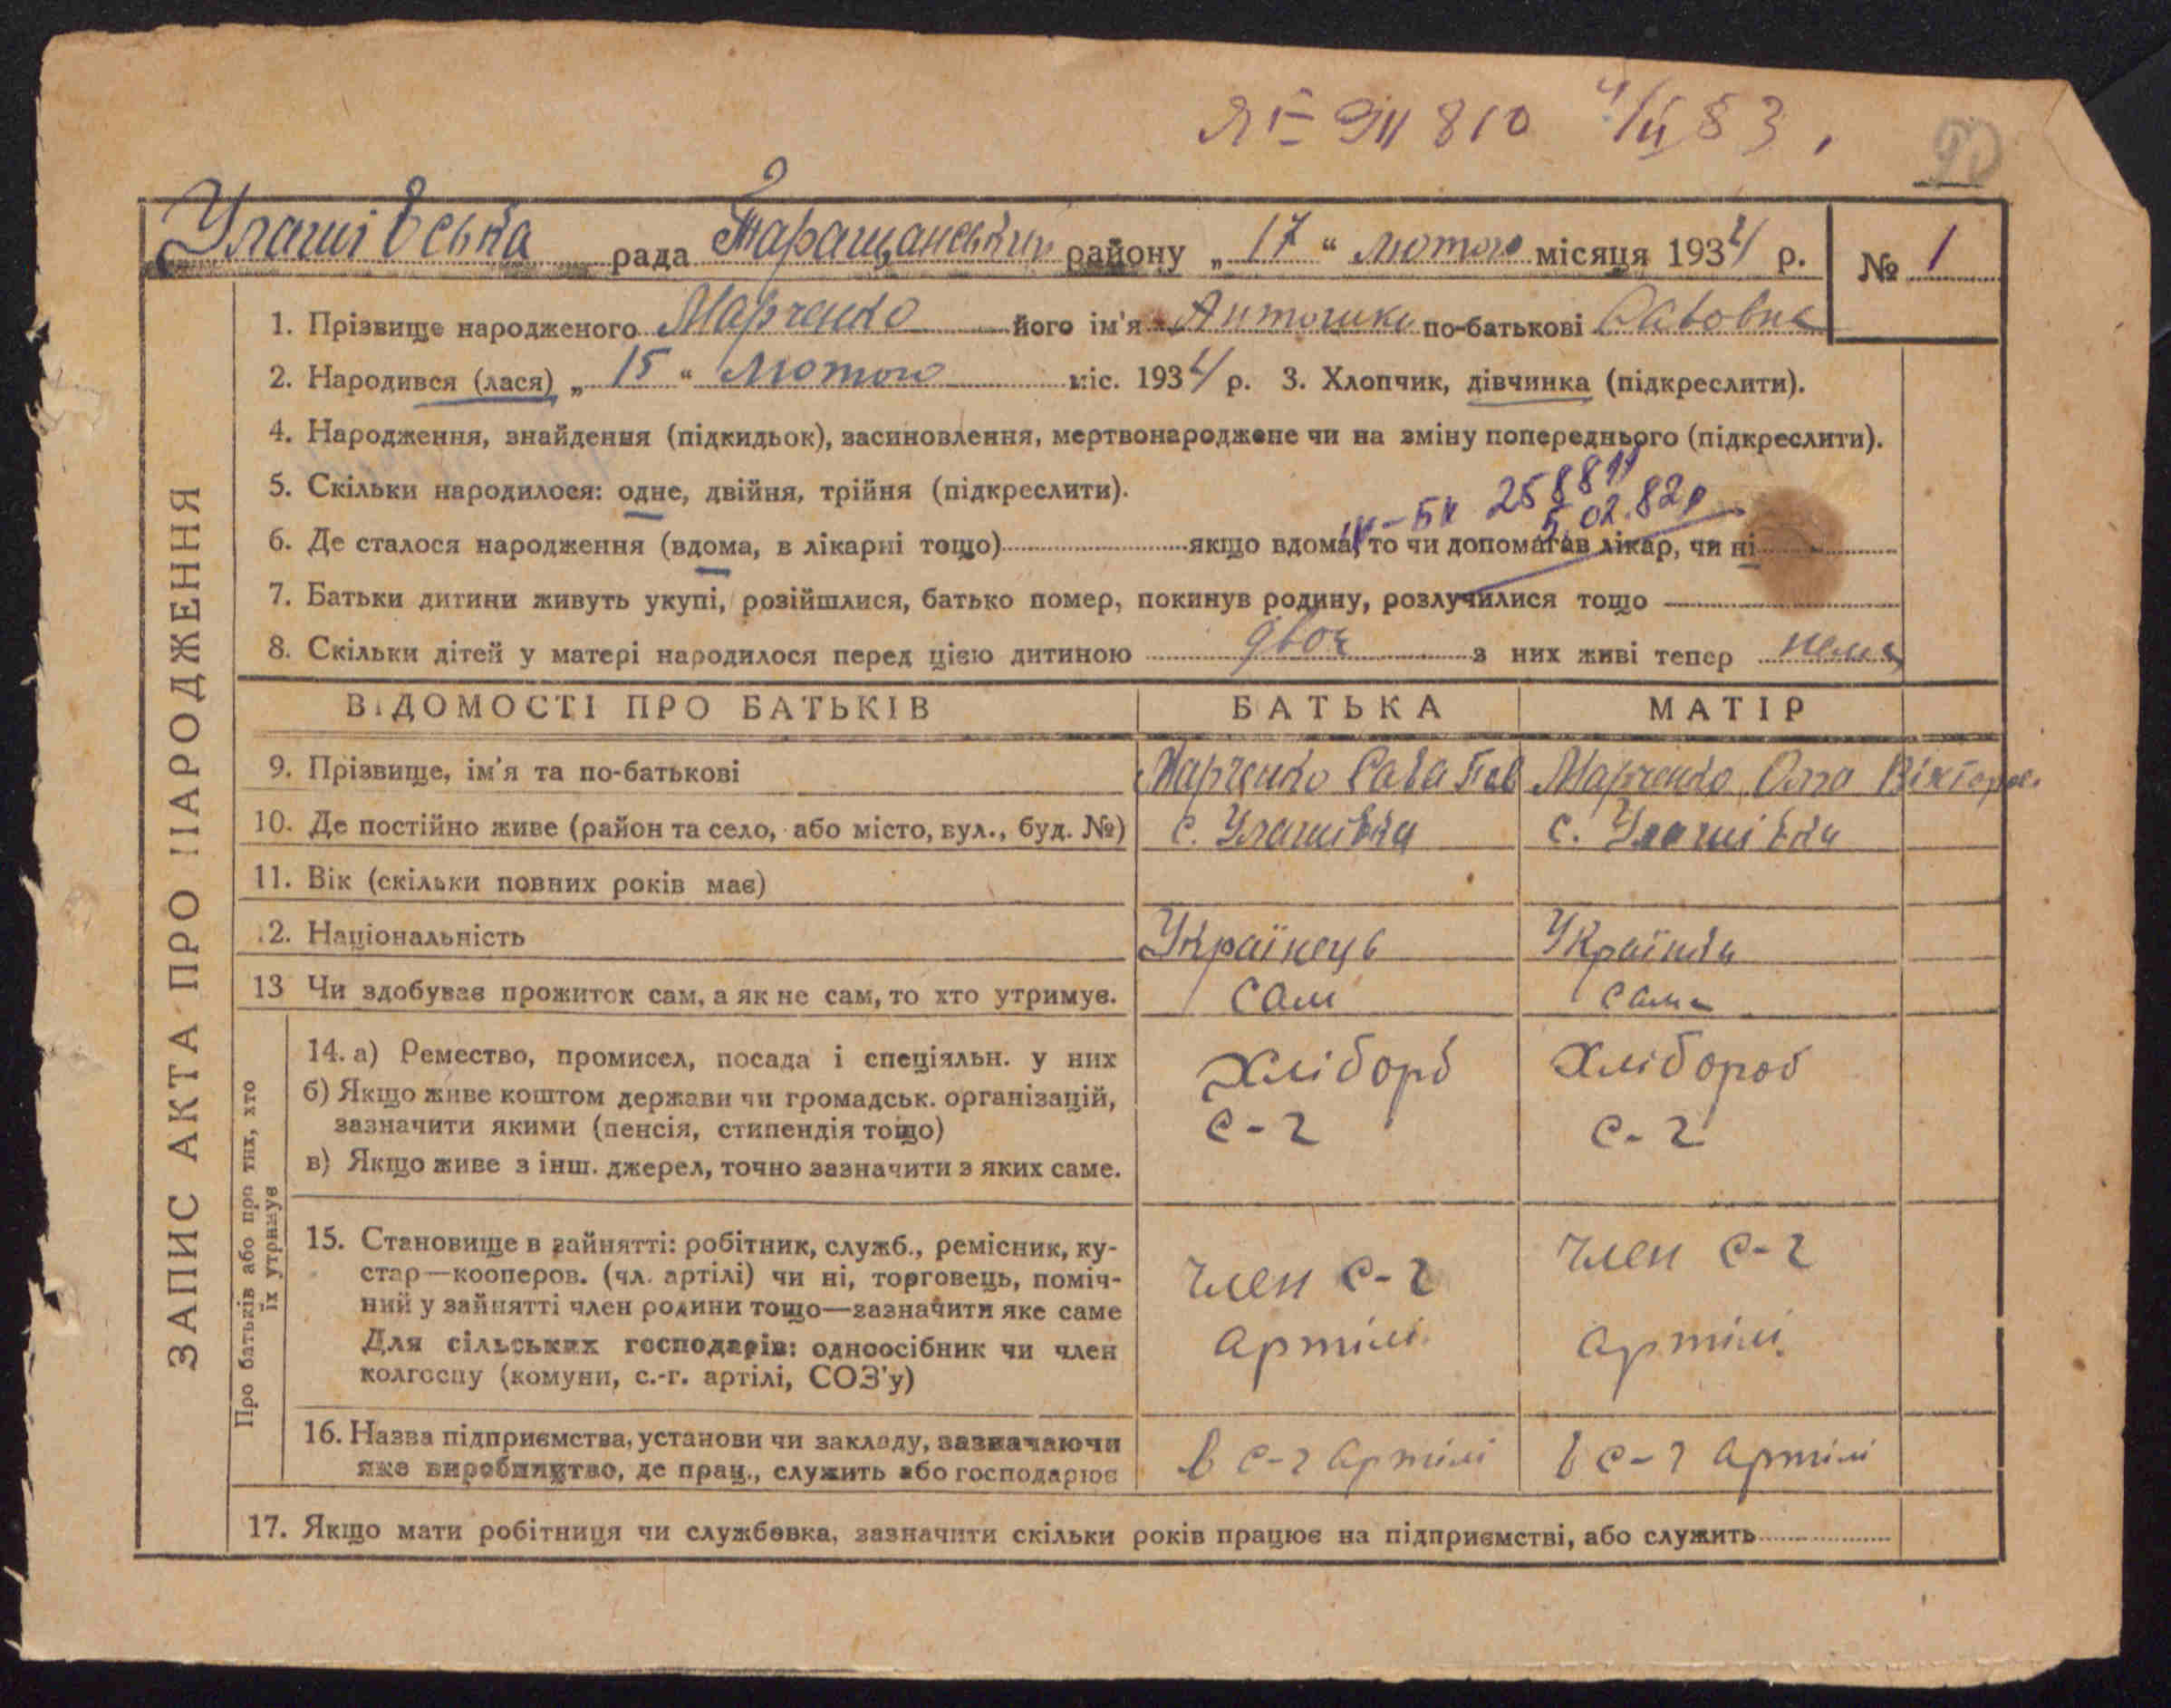 810 4/II 83
Улашівська рада Таращанський району „ 17 “ лютого місяця 1934 р. № 1
ЗАПИС АКТА ПРО НАРОДЖЕННЯ
1. Прізвище народженого Марченко його ім'я по-батькові Савовна
2. Народився (лася) „ 15 “ лютого міс. 1934 р. 3. Хлопчик, дівчинка (підкреслити).
4. Народження, знайдення (підкидьок), засиновлення, мертвонароджене чи на зміну попереднього (підкреслити).
5. Скільки народилося: одне, двійня, трійня (підкреслити).
5.02.82р
6. Де сталося народження (вдома, в лікарні тощо) якщо вдома, то чи допомагав лікар, чи ні
7. Батьки дитини живуть укупі, розійшлися, батько помер, покинув родину, розлучилися тощо
8. Скільки дітей у матері народилося перед цією дитиною двоє з них живі тепер нема
ВІДОМОСТІ ПРО БАТЬКІВ БАТЬКА МАТІР
9. Прізвище, ім'я та по-батькові Марченко Сава Пав Марченко Олга Вікторов.
10. Де постійно живе (район та село, або місто, вул., буд. №) с. Улашівка с. Улашівка
11. Вік (скільки повних років має)
12. Національність Українець Українка
13 Чи здобуває прожиток сам, а як не сам, то хто утримує. сам сама
Про батьків або про тих, хто
їх утримує
14. а) Ремество, промисел, посада і спеціяльн. у них Хліборб Хлібороб
б) Якщо живе коштом держави чи громадськ. організацій,
зазначити якими (пенсія, стипендія тощо) с-г с-г
в) Якщо живе з інш. джерел, точно зазначити з яких саме.
15. Становище в зайнятті: робітник, служб., ремісник, ку-
стар—кооперов. (чл. артілі) чи ні, торговець, поміч- член с-г член с-г
ний у зайнятті член родини тощо—зазначити яке саме
Для сільських господарів: одноосібник чи член артілі артілі.
колгоспу (комуни, с.-г. артілі, СОЗ'у)
16. Назва підприємства, установи чи закладу, зазначаючи
яке виробництво, де прац., служить або господарює в с-г артілі в с-г артілі
17. Якщо мати робітниця чи службовка, зазначити скільки років працює на підприємстві, або служить